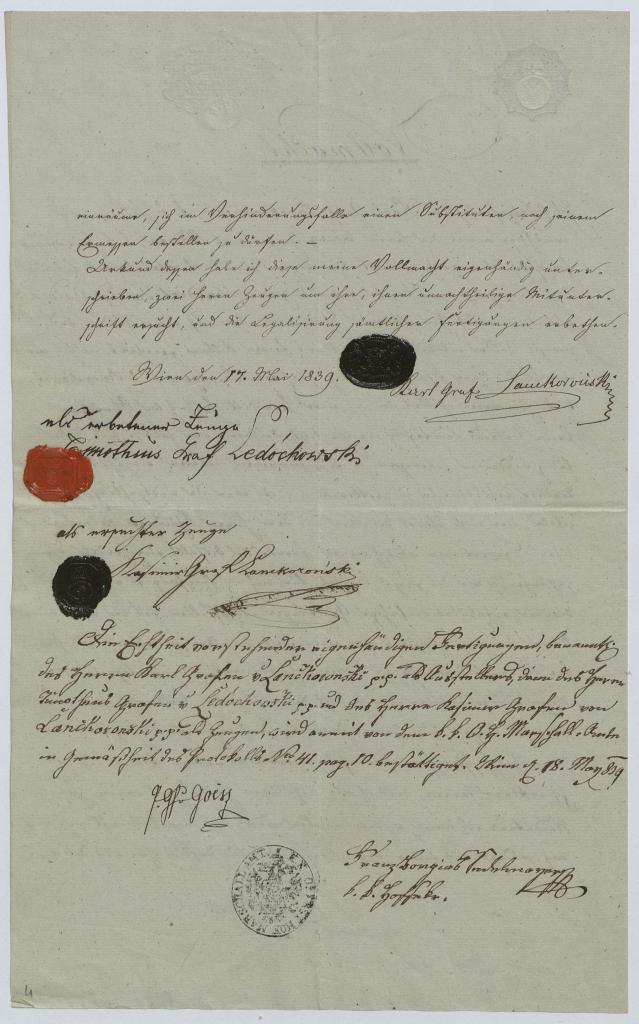 einräume, sich im Verhinderungsfalle einen Substituten, nach seinem
Ermessen bestellen zu dürfen. —
Urkund dessen habe ich diese meine Vollmacht eigenhändig unter-
schrieben, zwei Herrn Zeugen um ihre, ihnen unnachtheilige Mitunter-
schrift ersucht, und die Legalisirung sämtlicher Fertigungen erbethen.
Wien den 17. Mai 1839.
Karl Graf Lanckoroński
als erbetener Zeuge
Timotheus Graf Ledóchowski
als ersuchter Zeuge
Kasimir Graf Lanckoroński
Die Echtheit vorstehender eigenhändigen Fertigungen, benanntl.
des Herrn Karl Grafen v Lanckoronski p.p. als Ausstellers, dann des Herrn
Timotheus Grafen v Ledochowski p.p. und des Herrn Kasimir Grafen von
Lanckoronski p.p. als Zeugen, wird anmit von dem k. k. O. H. Marschall-Amte
in Gemäßheit des Protokolls No. 41. pag. 10. bestättiget. Wien d. 18. May 839
Goëss
Franz Borgias
k. k. Hofsekr.
4